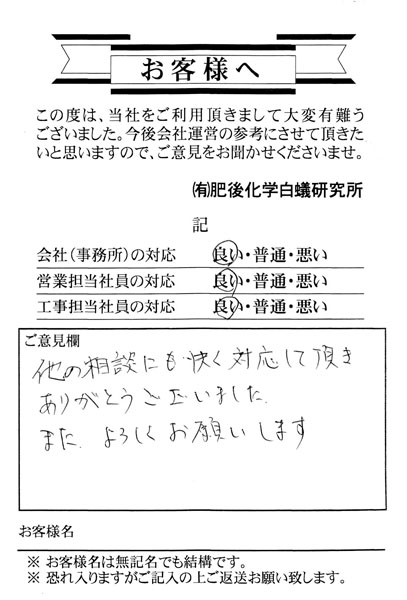 お客様へ
この度は、当社をご利用頂きまして大変有難う
ございました。今後会社運営の参考にさせて頂きた
いと思いますので、ご意見をお聞かせくださいませ。
㈲肥後化学白蟻研究所
記
会社（事務所）の対応 良い・普通・悪い
営業担当社員の対応 良い・普通・悪い
工事担当社員の対応 良い・普通・悪い
ご意見欄
他の相談にも快く対応して頂き
ありがとうございました。
また、よろしくお願いします
お客様名
※ お客様名は無記名でも結構です。
※ 恐れ入りますがご記入の上ご返送お願い致します。